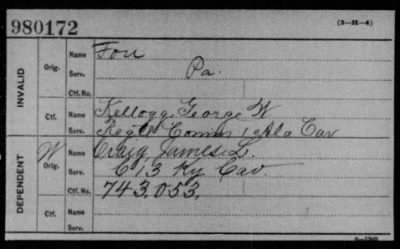 980172
(3-H-4)
INVALID
Orig.
Name
Serv. Pa.
Ctf. No.
Ctf.
Name Kellogg, George W
Serv. Reg'l Comm 1 Ala Cav
DEPENDENT
W
Orig.
Name Craig, James L.
Serv. C 13 Ky Cav.
Ctf. No. 743.053.
Ctf.
Name
Serv.